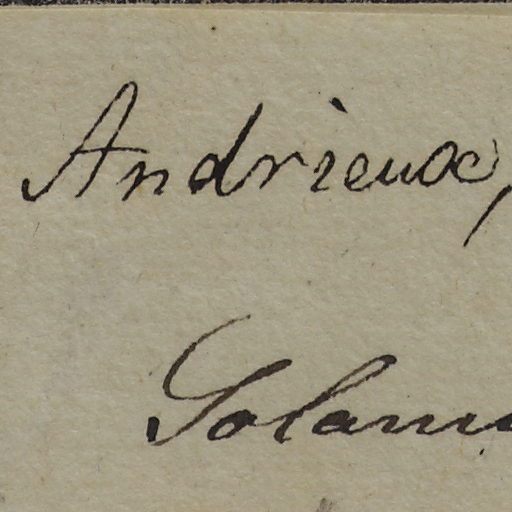 Andrieux,
Solanu